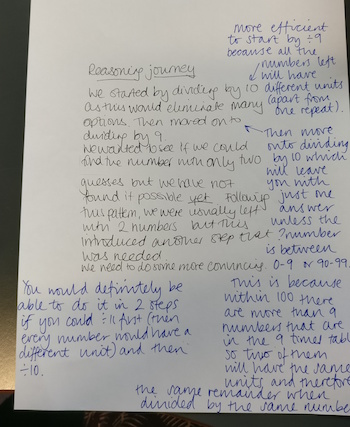 Reasoning journey
We started by dividing by 10
as this would eliminate many
options. Then moved on to
dividing by 9
We wanted to see if we could
find the number with only two
guesses but we have not
found it possible yet. Following
this pattern, we were usually left
with 2 numbers but this
introduced another step that
was needed
we need to do some more convincing
more efficient
to start by ÷9
because all the
numbers left
will have
different units
(apart from
one repeat).
Then move
onto dividing
by 10 which
will leave
you with
just one
answer
unless the
?number
is between
0-9 or 90-99.
This is because
within 100 there
are more than 9
numbers that are
in the 9 times tabl
so two of them
will have the same
units and therefore
the same remainder when
divided by the same numbe
You would definitely be
able to do it in 2 steps
if you could ÷11 first (then
every number would have a
different unit) and then
÷10.